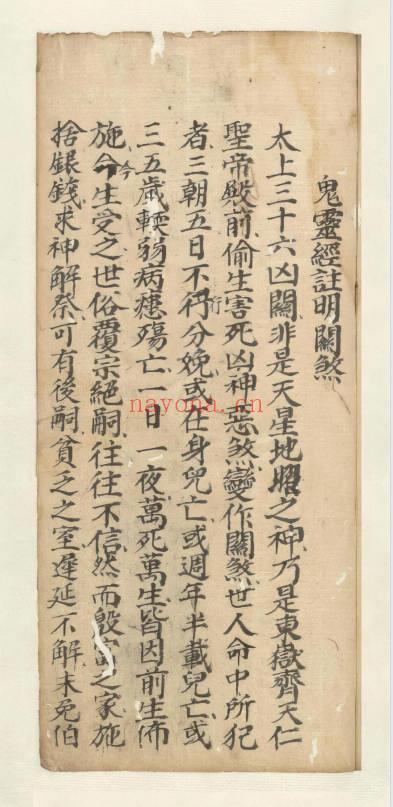 鬼靈經註明關煞
太上三十六凶關非是天星地曜之神乃是東嶽齊天仁
聖帝殿前偷生害死凶神惡煞變作關煞世人命中所犯
者三朝五日不行行分娩或在身兒亡或週年半載兒亡或
三五歲軟弱病瘧殤亡一日一夜萬死萬生皆因前生佈
施今今生受之世俗覆宗絕嗣往往不信然而殷富之家施
捨銀錢求神解祭可有後嗣貧乏之室遲延不解未免伯
nayona.cn